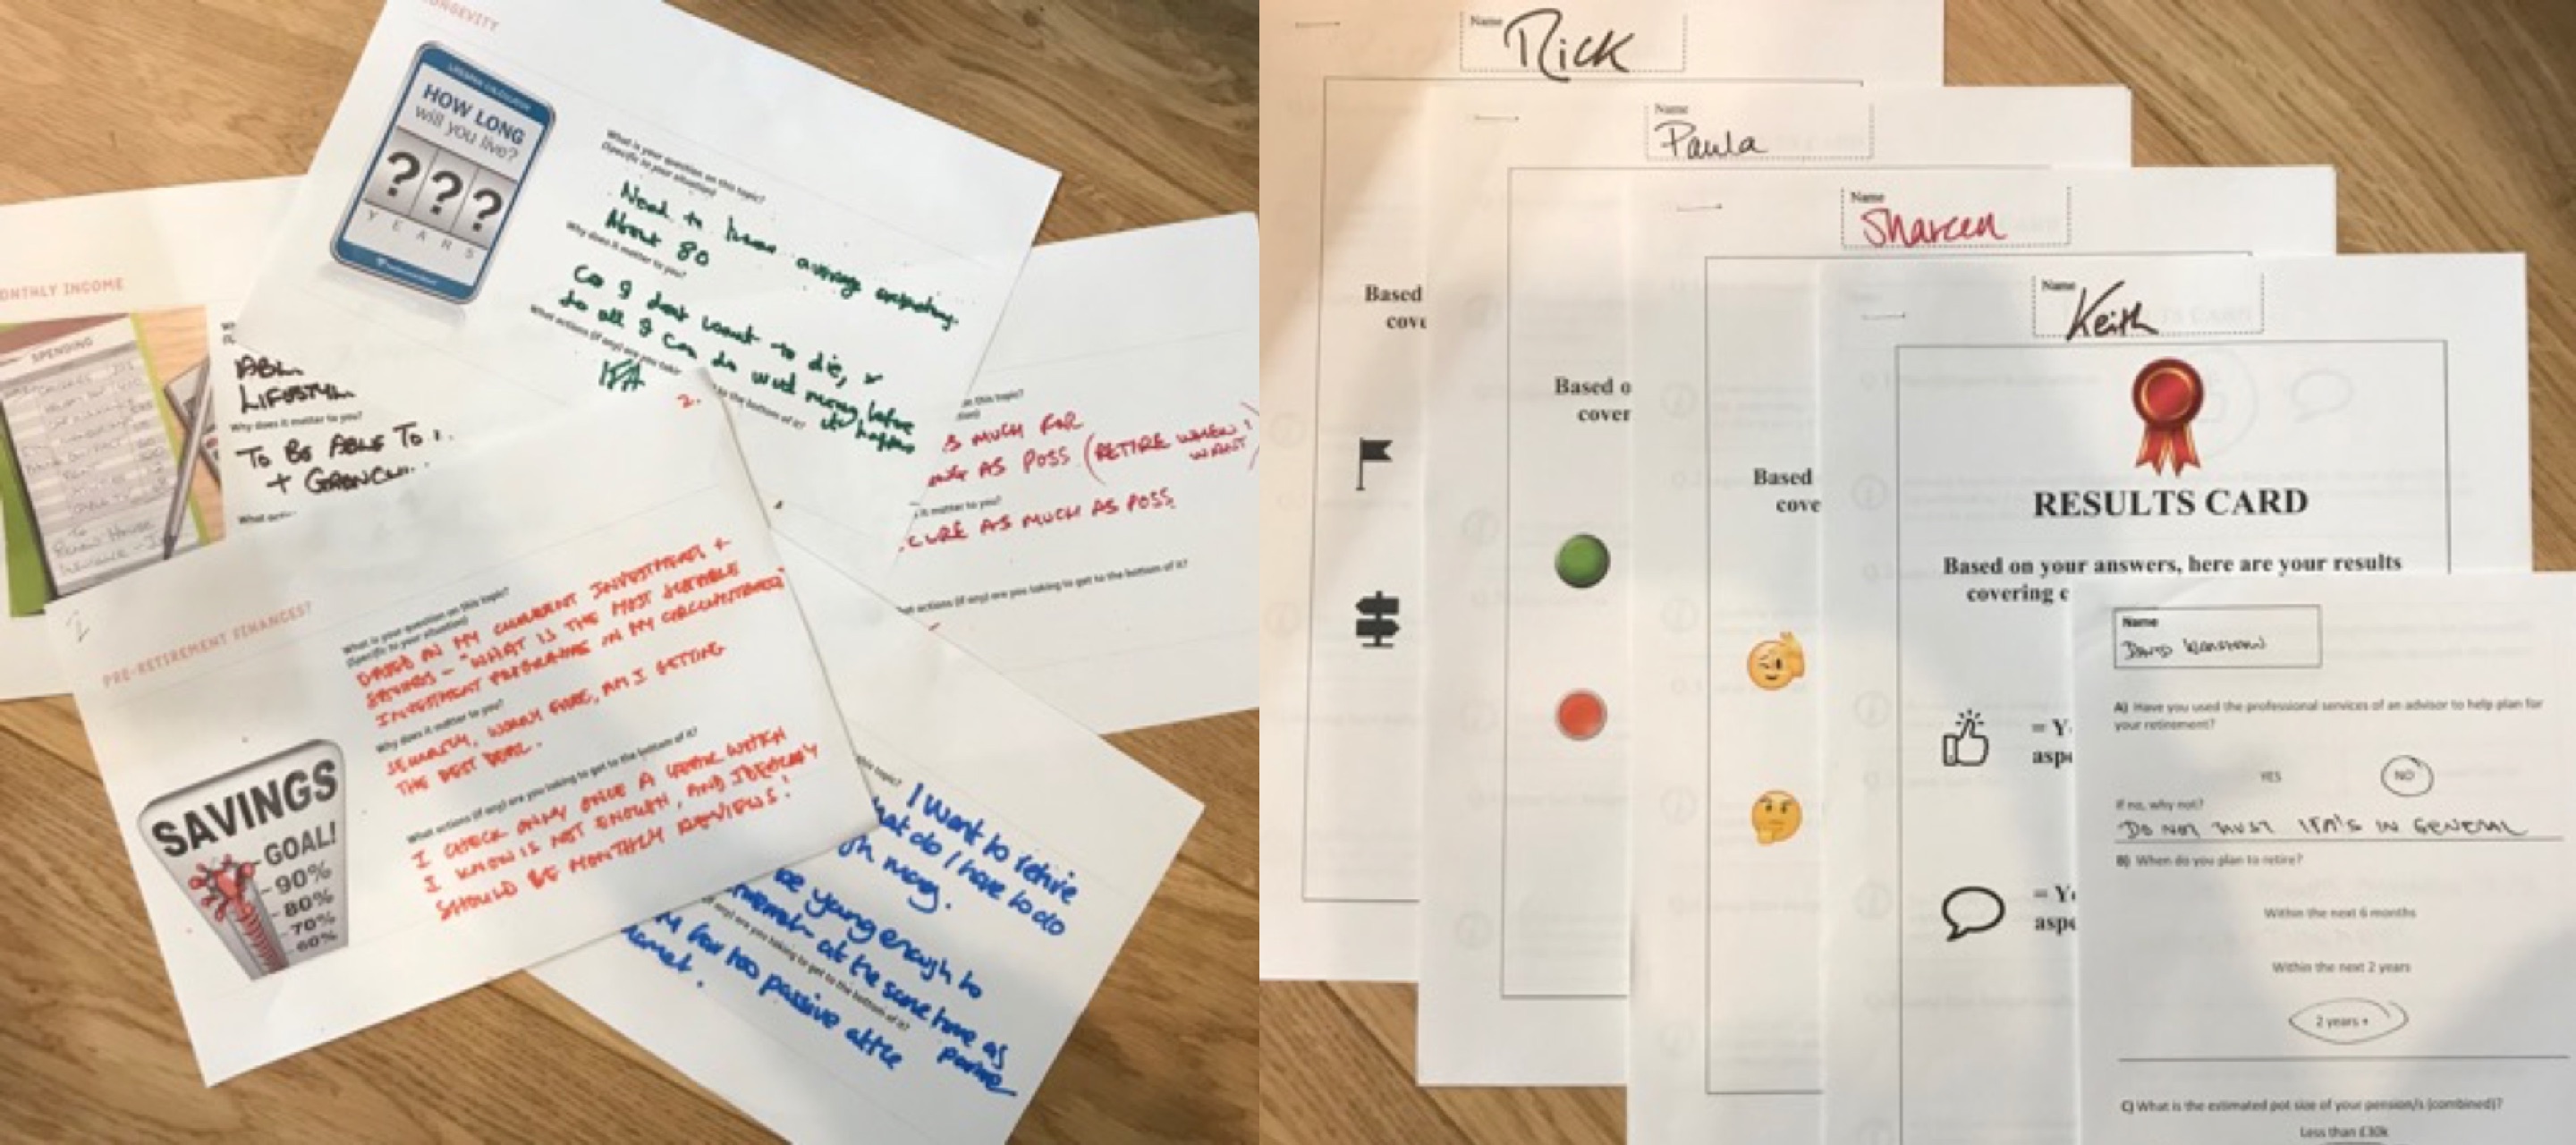 LONGEVITY
HOW LONG
will you live?
? ? ?
Y E A R S
What is your question on this topic?
(Specific to your situation)
Need to know average
About 80
Why does it matter to you?
Cos I dont want to die, &
do all I can do with money before
it happens
What actions (if any) are you
to the bottom of it?
ONTHLY INCOME
SPENDING
LIFESTYL
Why does it matter to you?
TO BE ABLE TO
+ GRANCH
on this topic?
S MUCH FOR
AS POSS (RETIRE WHEN I
WANT)
it matter to you?
CURE AS MUCH AS POSS.
actions (if any) are you taking to get to the bottom of it?
2.
PRE-RETIREMENT FINANCES?
What is your question on this topic?
(Specific to your situation)
BASED ON MY CURRENT INVESTMENTS +
SAVINGS - "WHAT IS THE MOST SUITABLE
INVESTMENT PROGRAMME IN MY CIRCUMSTANCES"
Why does it matter to you?
AM I GETTING
THE BEST DEAL.
What actions (if any) are you taking to get to the bottom of it?
I CHECK ONLY ONCE A YEAR WHICH
I KNOW IS NOT ENOUGH, AND IDEALLY
SHOULD BE MONTHLY REVIEWS!
SAVINGS
GOAL!
90%
80%
70%
60%
this topic?
I want to retire
hat do I have to do
on money.
be young enough to
at the same time as
partner
if any) are you taking to get to the bottom of it?
far too passive
Name
Rick
Based
cove
Name
Paula
Based o
cover
Name
Shareen
Based
cove
Name
Keith
RESULTS CARD
Based on your answers, here are your results
covering c
= Y
aspe
= Y
aspe
Name
DAVID
A) Have you used the professional services of an advisor to help plan for
your retirement?
YES
NO
If no, why not?
DO NOT TRUST IFA'S IN GENERAL
B) When do you plan to retire?
Within the next 6 months
Within the next 2 years
2 years +
C) What is the estimated pot size of your pension/s (combined)?
Less than £30k